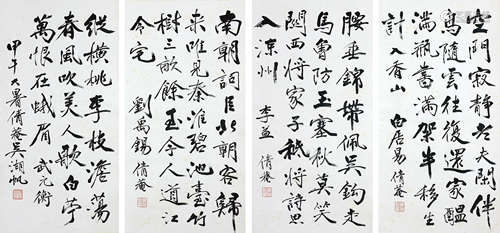 空門寂静老夫閑伴
鳥隨雲往復還家醞
滿瓶書滿架半移生
計入香山 白居易 倩菴
腰垂錦帶佩吳鉤走
馬曾防玉塞秋莫笑
關西將家子秪將詩思
入涼州 李益 倩菴
南朝詞臣北朝客歸
來唯見秦淮碧池臺竹
樹三畝餘至今人道江
令宅 劉禹錫 倩菴
縱橫桃李枝澹蕩
春風吹美人歌白苧
萬恨在蛾眉 武元衡
甲午大暑倩菴吳湖帆